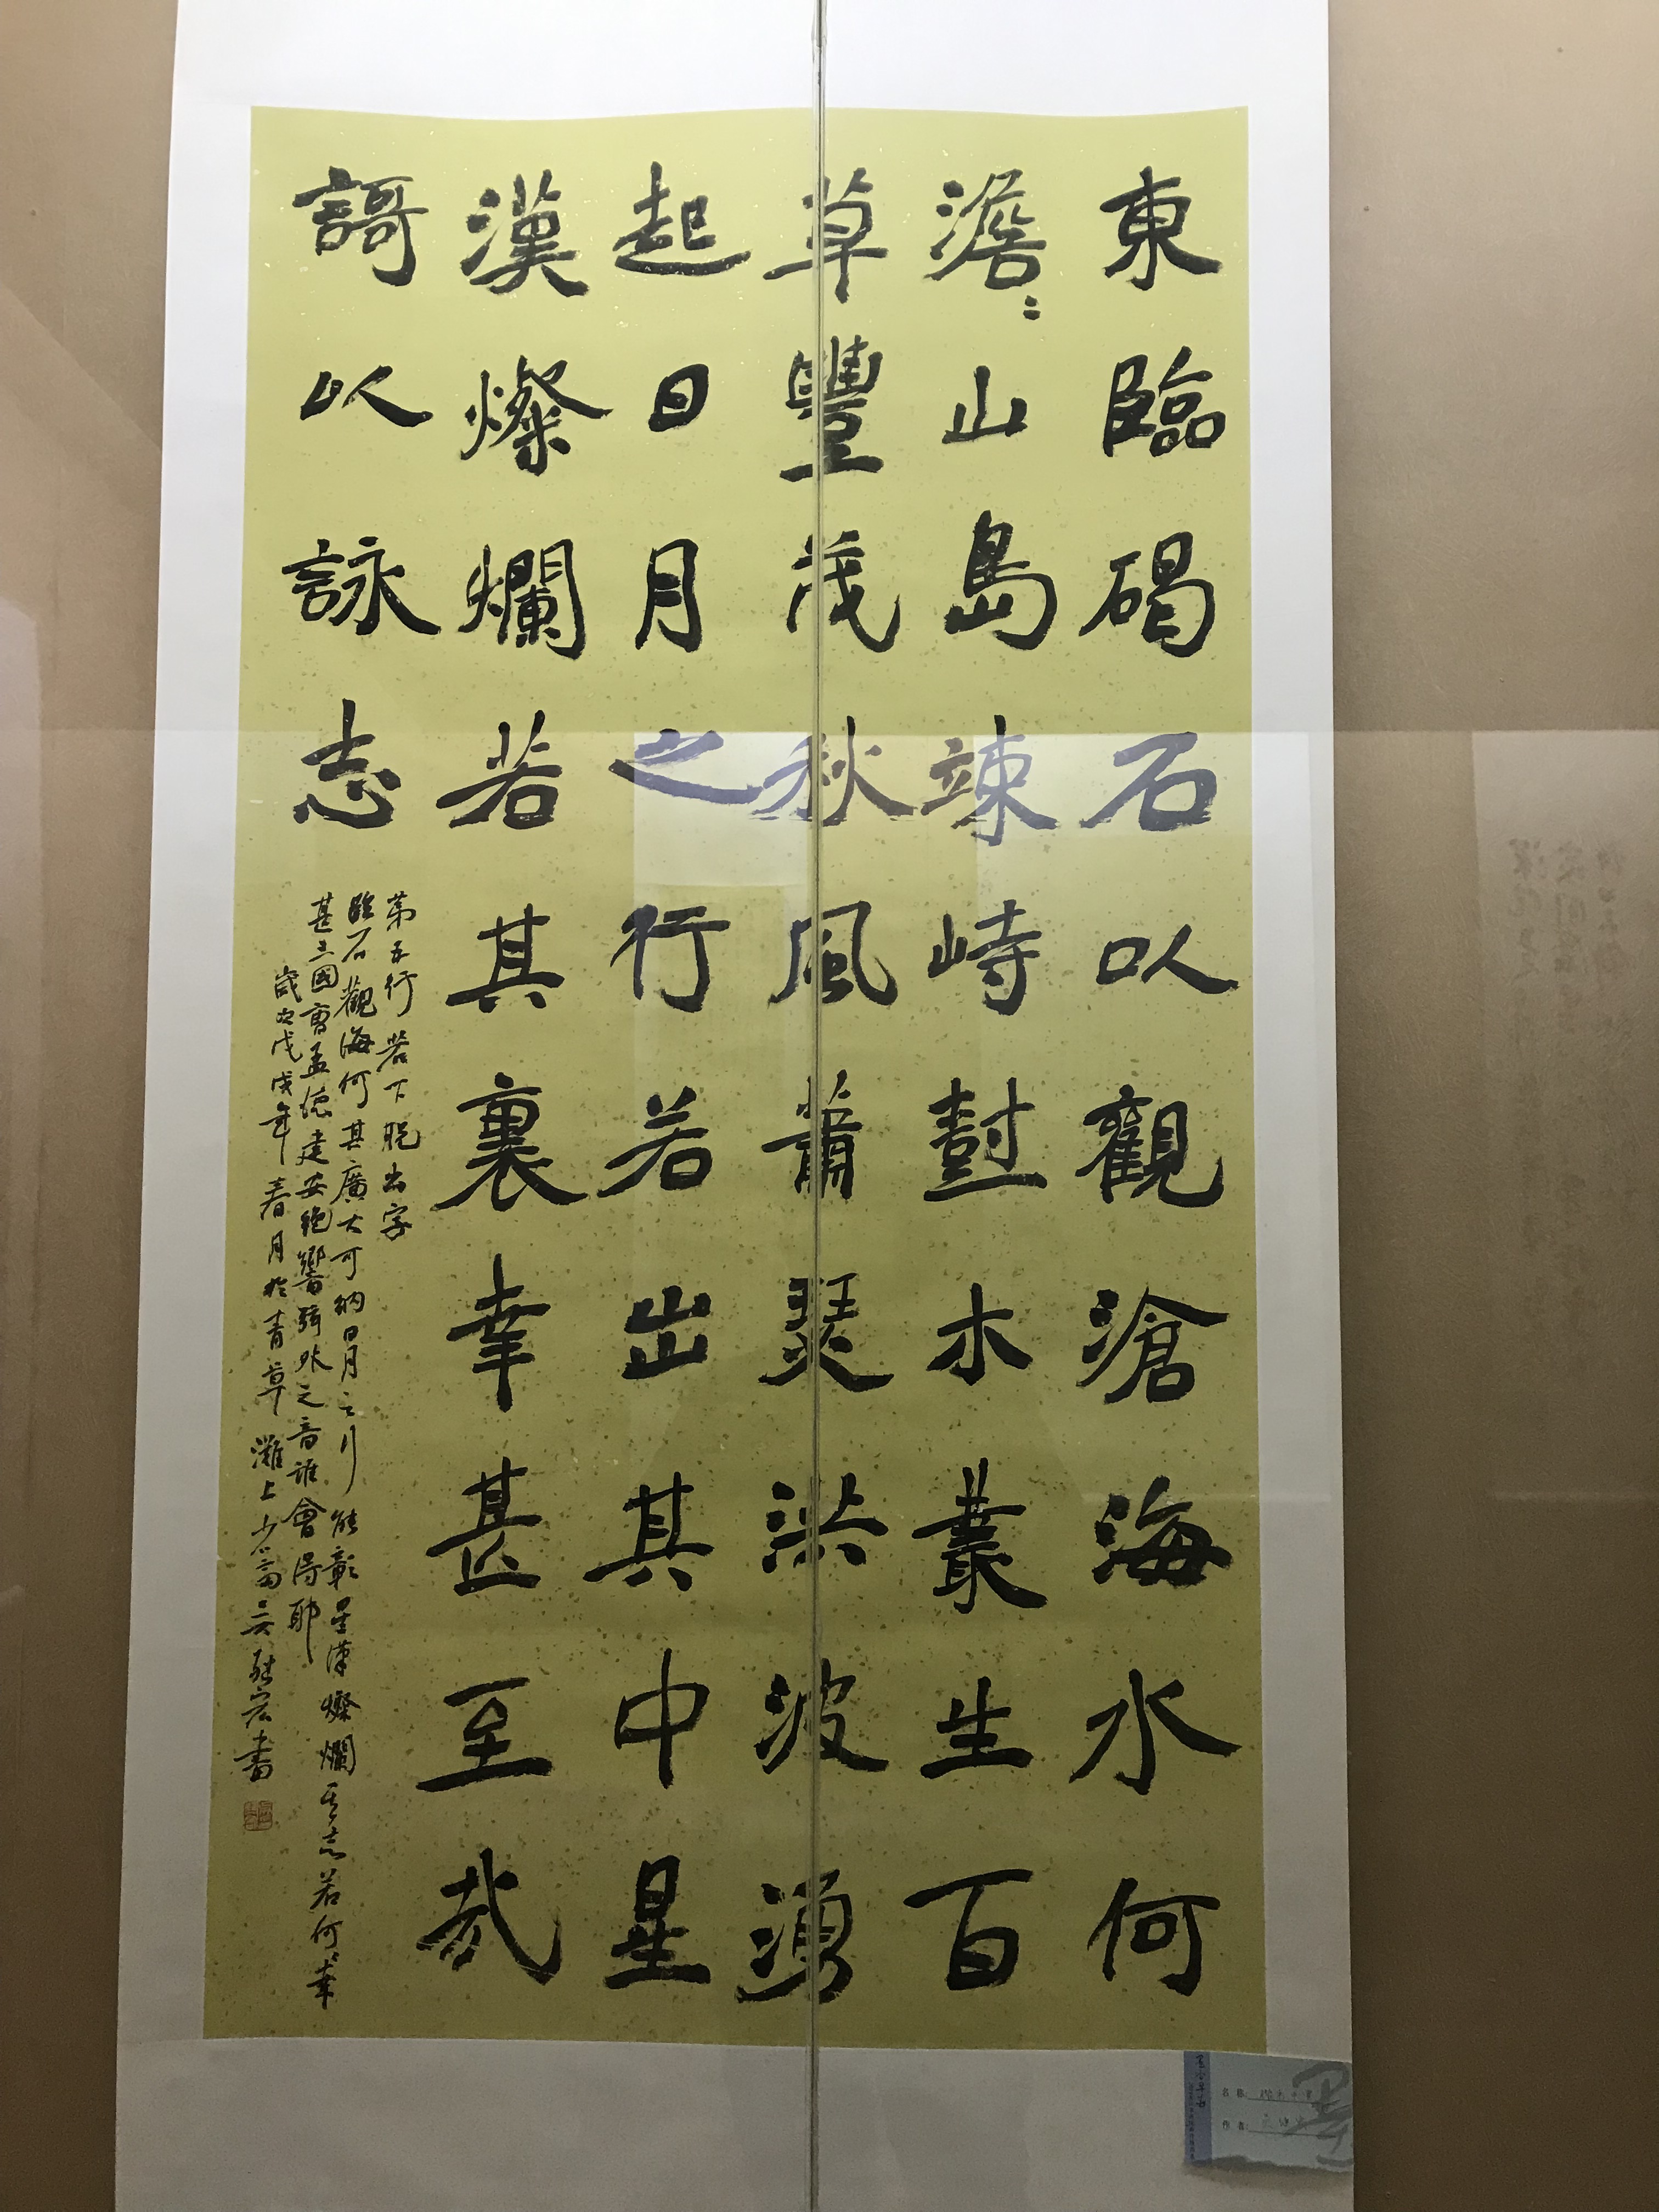 東臨碣石以觀滄海水何
澹〻山島竦峙尌木叢生百
草豐茂秋風蕭瑟洪波湧
起日月之行若出其中星
漢燦爛若其裏幸甚至哉
謌以詠志
第五行若下脫出字
臨石觀海何其廣大可納日月之行能彰星漢燦爛其志若何幸
甚三國曹孟德建安絕響弦外之音誰會得耶
歲次戊戌年春月於青草灘上少
宏書
名称
作者